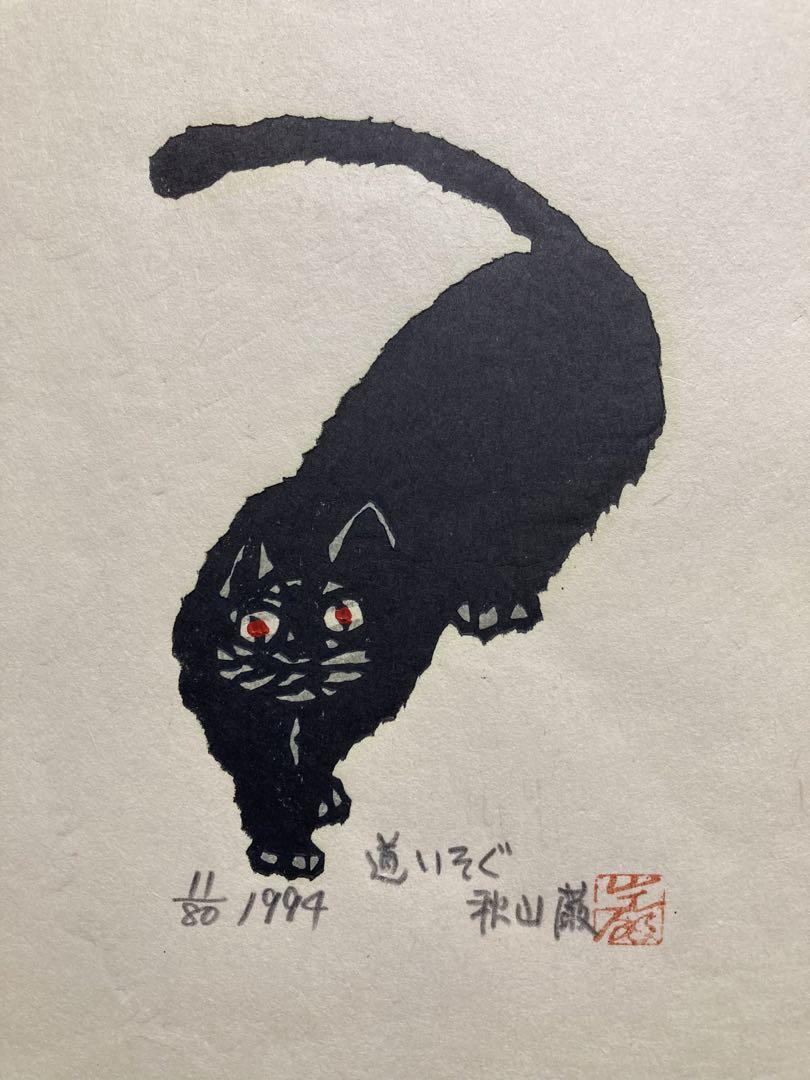 道いそぐ
11/80 1994 秋山巌